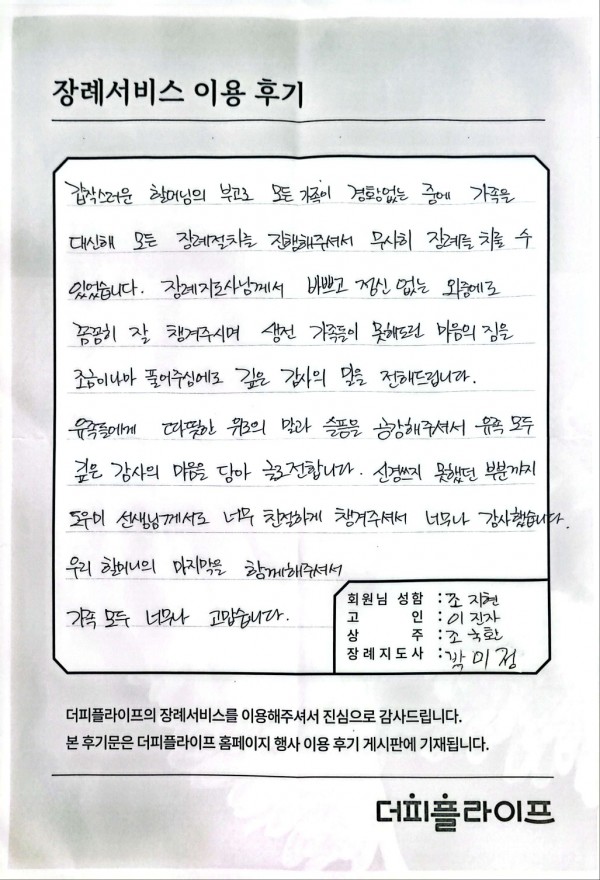 장례서비스 이용 후기
갑작스러운 할머님의 부고로 모든 가족이 경황없는 중에 가족을
대신해 모든 장례절차를 진행해주셔서 무사히 장례를 치룰 수
있었습니다. 장례지도사님께서 바쁘고 정신 없는 와중에도
꼼꼼히 잘 챙겨주시며 생전 가족들이 못해드린 마음의 짐을
조금이나마 풀어주심에도 깊은 감사의 말을 전해드립니다.
유족들에게 따뜻한 위로의 말과 슬픔을 공감해주셔서 유족 모두
깊은 감사의 마음을 담아 글로전합니다. 신경쓰지 못했던 부분까지
도우미 선생님께서도 너무 친절하게 챙겨주셔서 너무나 감사했습니다.
우리 할머니의 마지막을 함께해주셔서
가족 모두 너무나 고맙습니다.
회원님 성함 : 조지현
고 인 : 이진자
상 주 : 조
장례지도사 : 박미정
더피플라이프의 장례서비스를 이용해주셔서 진심으로 감사드립니다.
본 후기문은 더피플라이프 홈페이지 행사 이용 후기 게시판에 기재됩니다.
더피플라이프